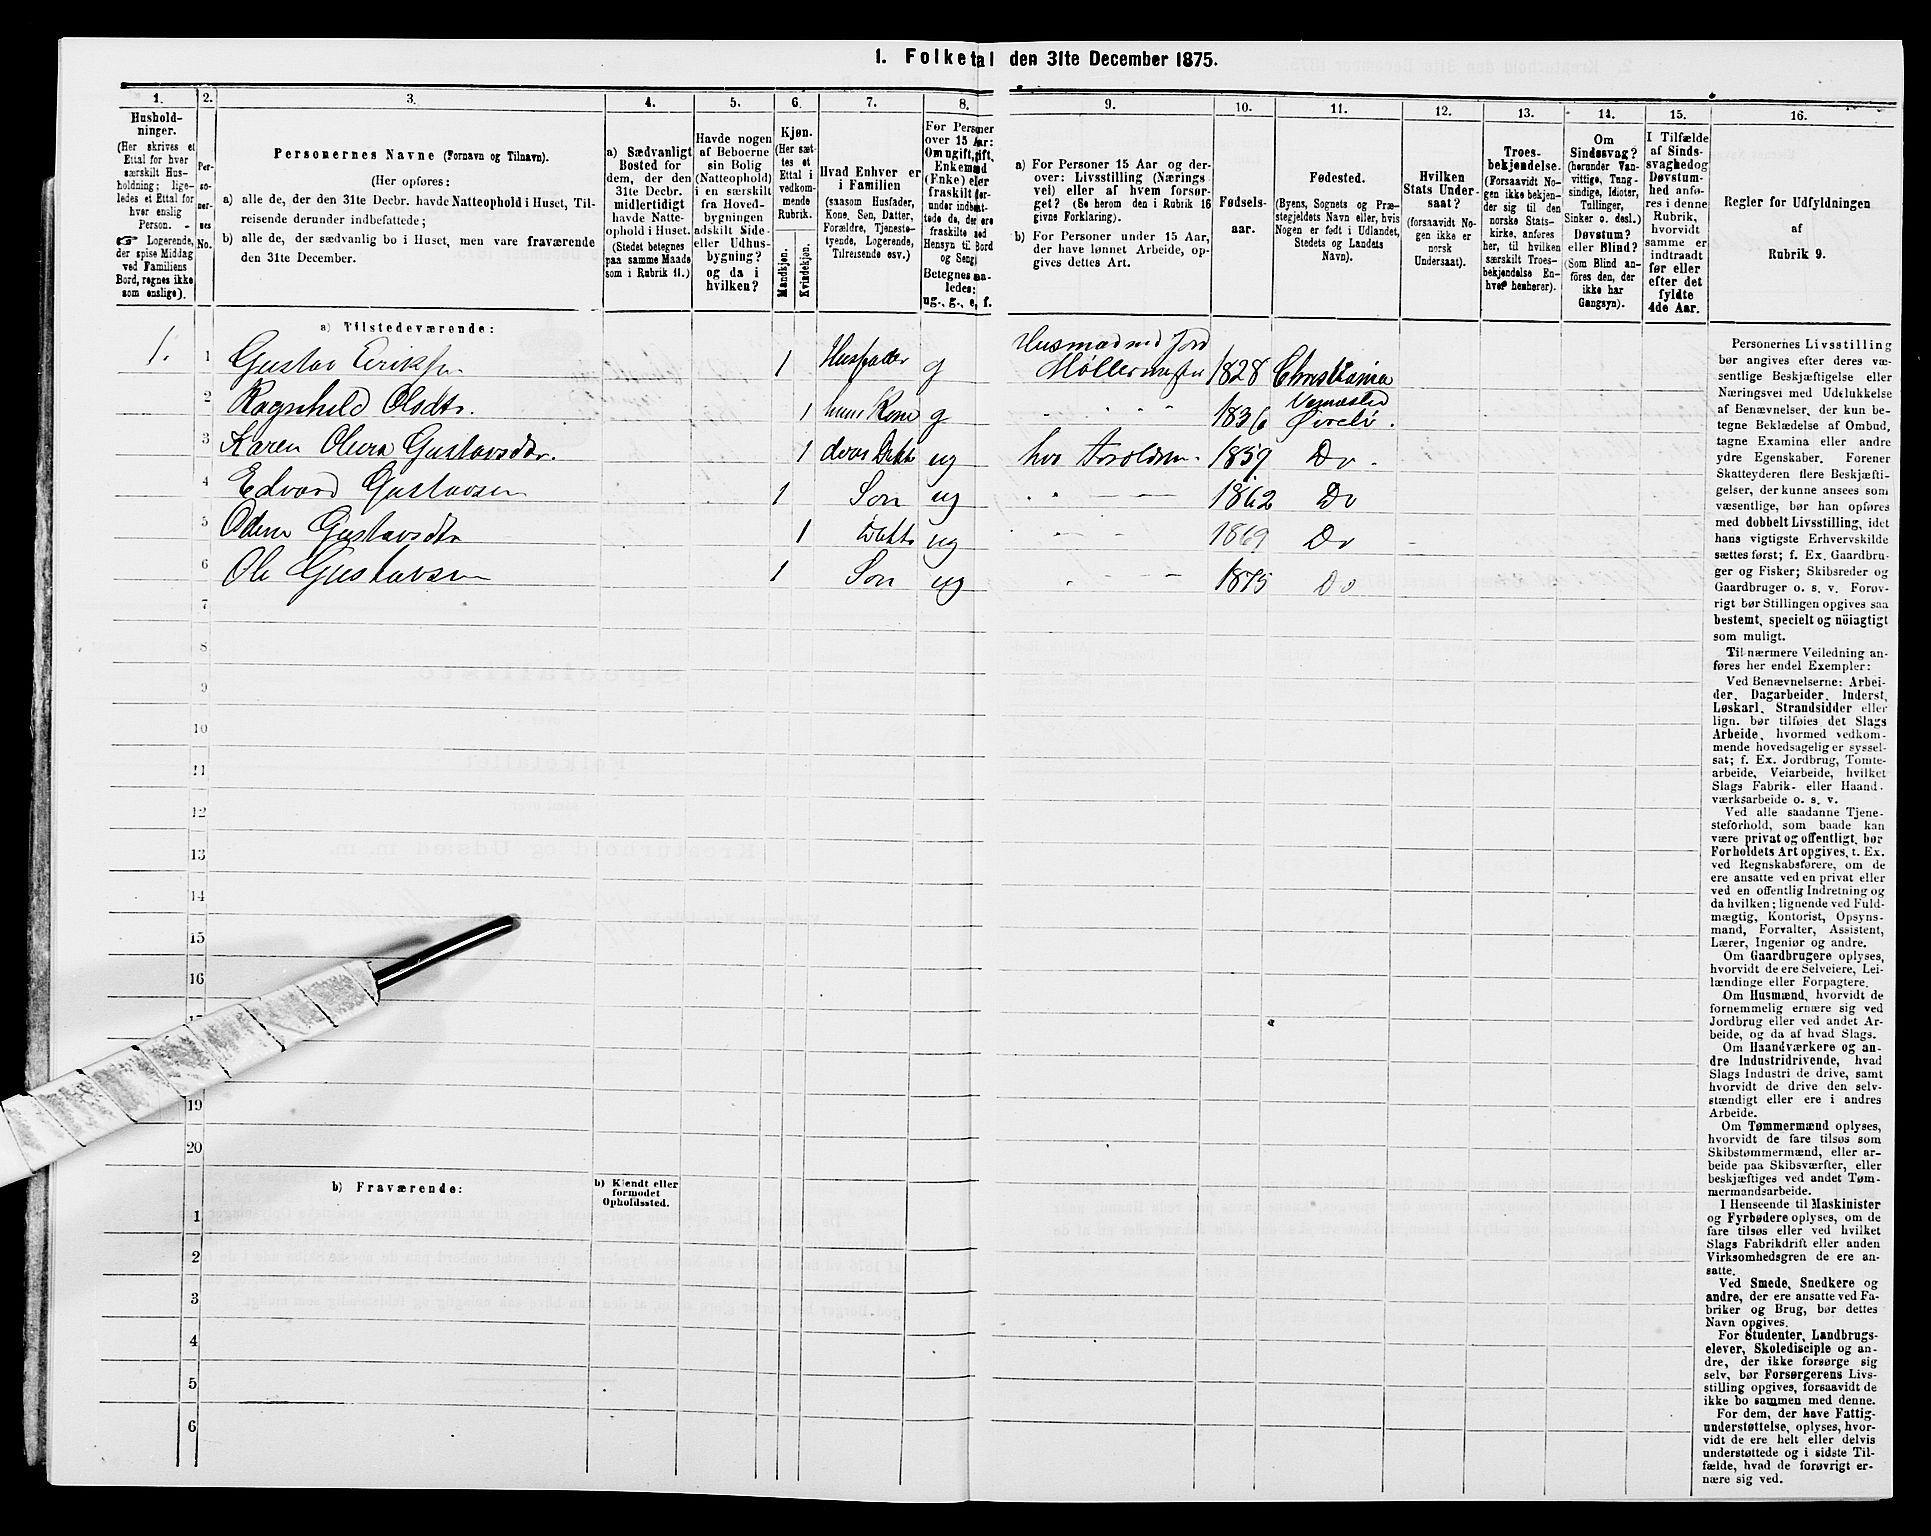 1. Folketal den 31te December 1875.
1. 2. 3. 4. 5. 6. 7. 8. 9. 10. 11. 12. 13. 14. 15. 16.
Hushold-
ninger.
(Her skrives et
Ettal for hver
særskilt Hus-
holdning; lige-
ledes et Ettal for
hver enslig
Person.
☞ Logerende,
der spise Middag
ved Familiens
Bord, regnes ikke
som enslige).
Per-
so-
ner-
nes
No.
Personernes Navne (Fornavn og Tilnavn).
(Her opføres:
a) alle de, der den 31te Decbr. havde Natteophold i Huset, Til-
reisende derunder indbefattede;
b) alle de, der sædvanlig bo i Huset, men vare fraværende
den 31te December.
a) Sædvanligt
Bosted for
dem, der den
31te Decbr.
midlertidigt
havde Natte-
ophold i Huset.
(Stedet betegnes
paa samme Maade
som i Rubrik 11.)
Havde nogen
af Beboerne
sin Bolig
(Natteophold)
i en særskilt
fra Hoved-
bygningen
adskilt Side-
eller Udhus-
bygning?
og da i
hvilken?
Kjøn.
(Her sæt-
tes et
Ettal i
vedkom-
mende
Rubrik.
Mandkjøn.
Kvindekjøn.
Hvad Enhver er
i Familien
(saasom Husfader,
Kone, Søn, Datter,
Forældre, Tjenestø-
tyende, Logerende,
Tilreisende osv.)
For Personer
over 15 Aar:
Om ugift, gift,
Enkemand
(Enke) eller
fraskilt der-
under indbefat-
tede de, der ere
fraskilte med
Hensyn til Bord
og Seng)
Betegnes saa-
ledes:
ug., g., e, f.
a) For Personer 15 Aar og der-
over: Livsstilling (Nærings
vei) eller af hvem forsør-
get? (Se herom den i Rubrik 16
givne Forklaring).
b) For Personer under 15 Aar,
der have lønnet Arbeide, op-
gives dettes Art.
Fødsels-
aar.
Fødested.
(Byens, Sognets og Præ-
stegjeldets Navn eller, hvis
Nogen er født i Udlandet,
Stedets og Landets
Navn).
Hvilken
Stats Under-
saat?
(forsaavidt No-
gen ikke er
norsk
Undersaat).
Troes-
bekjendelse.
(Forsaavidt No-
gen ikke bekjen-
der sig til den
norske Stats-
kirke, anføres
her, til hvilken
særskilt Troes-
bekjendelse En-
hver henhører).
Om
Sindssvag?
(herunder Van-
vittige, Tung-
sindige, Idioter,
Tullinger,
Sinker o. desl.)
Døvstum?
eller Blind?
(Som Blind an-
føres den, der
ikke har
Gangsyn).
I Tilfælde
af Sinds-
svaghed og
Døvstum-
hed anfø-
res i denne
Rubrik,
hvorvidt
samme er
indtraadt
før eller
efter det
fyldte
4de Aar.
Regler for Udfyldningen
af
Rubrik 9.
a) Tilstedeværende:
1. 1 Gustav Eriksen 1 Husfader g Husmand med Jord Møllermester 1828 Christiania
2 Ragnhild Olsdtr. 1 hans Kone g 1836 Øvrebø.
3 Karen Olava Gustavsdtr. 1 deres Datt ug hos Forældrene 1859 Do.
4 Edvard Gustavsen 1 Søn ug 1862 Do
5 Gustavsdtr 1 Datt ug 1869 Do
6 Ole Gustavsen 1 Søn ug 1875 Do
7
8
9
10
11
12
13
14
15
16
19
20
b) Fraværende: b) Kjendt eller
formodet
Opholdssted.
1
2
3
4
5
6
Personernes Livsstilling
bør angives efter deres væ-
sentlige Beskjæftigelse eller
Næringsvei med Udelukkelse
af Benævnelser, der kun be-
tegne Beklædelse af Ombud,
tagne Examina eller andre
ydre Egenskaber. Forener
Skatteyderen flere Beskjæfti-
gelser, der kunne ansees som
væsentlige, bør han opføres
med dobbelt Livsstilling, idet
hans vigtigste Erhvervskilde
sættes først; f. Ex. Gaardbru-
ger og Fisker; Skibsreder og
Gaardbruger o. s. v. Forøv-
rigt bør Stillingen opgives saa
bestemt, specielt og nöiagtigt
som muligt.
Til nærmere Veiledning an-
føres her endel Exempler:
Ved Benævnelserne: Arbei-
der, Dagarbeider, Inderst,
Løskarl, Strandsidder eller
lign. bør tilføies det Slags
Arbeide, hvormed vedkom-
mende hovedsagelig er syssel-
sat; f. Ex. Jordbrug, Tomte-
arbeide, Veiarbeide, hvilket
Slags Fabrik- eller Haand-
værksarbeide o. s. v.
Ved alle saadanne Tjene-
steforhold, som baade kan
være privat og offentligt, bør
Forholdets Art opgives, t. Ex.
ved Regnskabsførere, om de
ere ansatte ved en privat eller
ved en offentlig Indretning og
da hvilken; lignende ved Fuld-
mægtig, Kontorist, Opsyns-
mand, Forvalter, Assistent,
Lærer, Ingeniør og andre.
Om Gaardbrugere oplyses,
hvorvidt de ere Selveiere, Lei-
lændinge eller Forpagtere.
Om Husmænd, hvorvidt de
fornemmelig ernære sig ved
Jordbrug eller ved andet Ar-
beide, og da af hvad Slags.
Om Haandværkere og an-
dre Industridrivende, hvad
Slags Industri de drive, samt
hvorvidt de drive den selv-
stændigt eller ere i andres
Arbeide.
Om Tømmermænd oplyses,
hvorvidt de fare tilsøs som
Skibstømmermænd, eller ar-
beide paa Skibsværfter, eller
beskjæftiges ved andet Tøm-
mermandsarbeide.
I Henseende til Maskinister
og Fyrbødere oplyses, om de
fare tilsøs eller ved hvilket
Slags Fabrikdrift eller anden
Virksomhedsgren de ere an-
satte.
Ved Smede, Snedkere og
andre, der ere ansatte ved Fa-
briker og Brug, bør dettes
Navn opgives.
For Studenter, Landbrugs-
elever, Skoledisciple og an-
dre, der ikke forsørge sig
selv, bør Forsørgerens Livs-
stilling opgives, forsaavidt de
ikke bo sammen med denne.
For dem, der have Fattig-
understøttelse, oplyses, hvor-
vidt de ere helt eller delvis
understøttede og i sidste Til-
fælde, hvad de forøvrigt er-
nære sig ved.